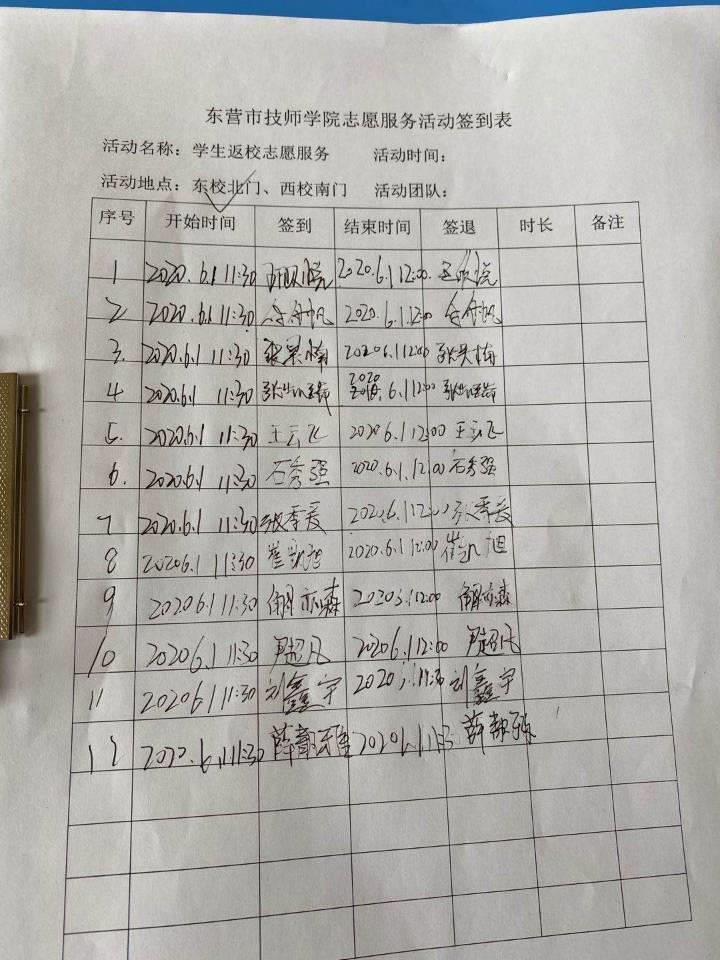 东营市技师学院志愿服务活动签到表
活动名称：学生返校志愿服务 活动时间：
活动地点：东校北门、西校南门 活动团队：
序号 开始时间 签到 结束时间 签退 时长 备注
1 2020.6.1 11:30 2020.6.1 12:00
2 2020.6.1 11:30 2020.6.1 12:00
3. 2020.6.1 11:30 2020.6.1 12:00
4 2020.6.1 11:30 2020 6.1 12:00
5. 2020.6.1 11:30 王云飞 2020 6.1 12:00 王云飞
6. 2020.6.1 11:30 石秀强 2020.6.1, 12:00 石秀强
7 2020.6.1 11:30 张季爰 2020.6.1 12:00 张季爰
8 2020 6.1 11:30 崔凯旭 2020.6.1 12:00 崔凯旭
9 2020 6.1 11:30 解亦森 12:00 解亦森
10 2020 6.1 11:30 尹超凡 2020 6.1 12:00 尹超凡
11 2020 6.1 11:30 刘鑫宇 2020 11:30 刘鑫宇
12 2020.6.1 11:30 薛 2020 6.1 薛